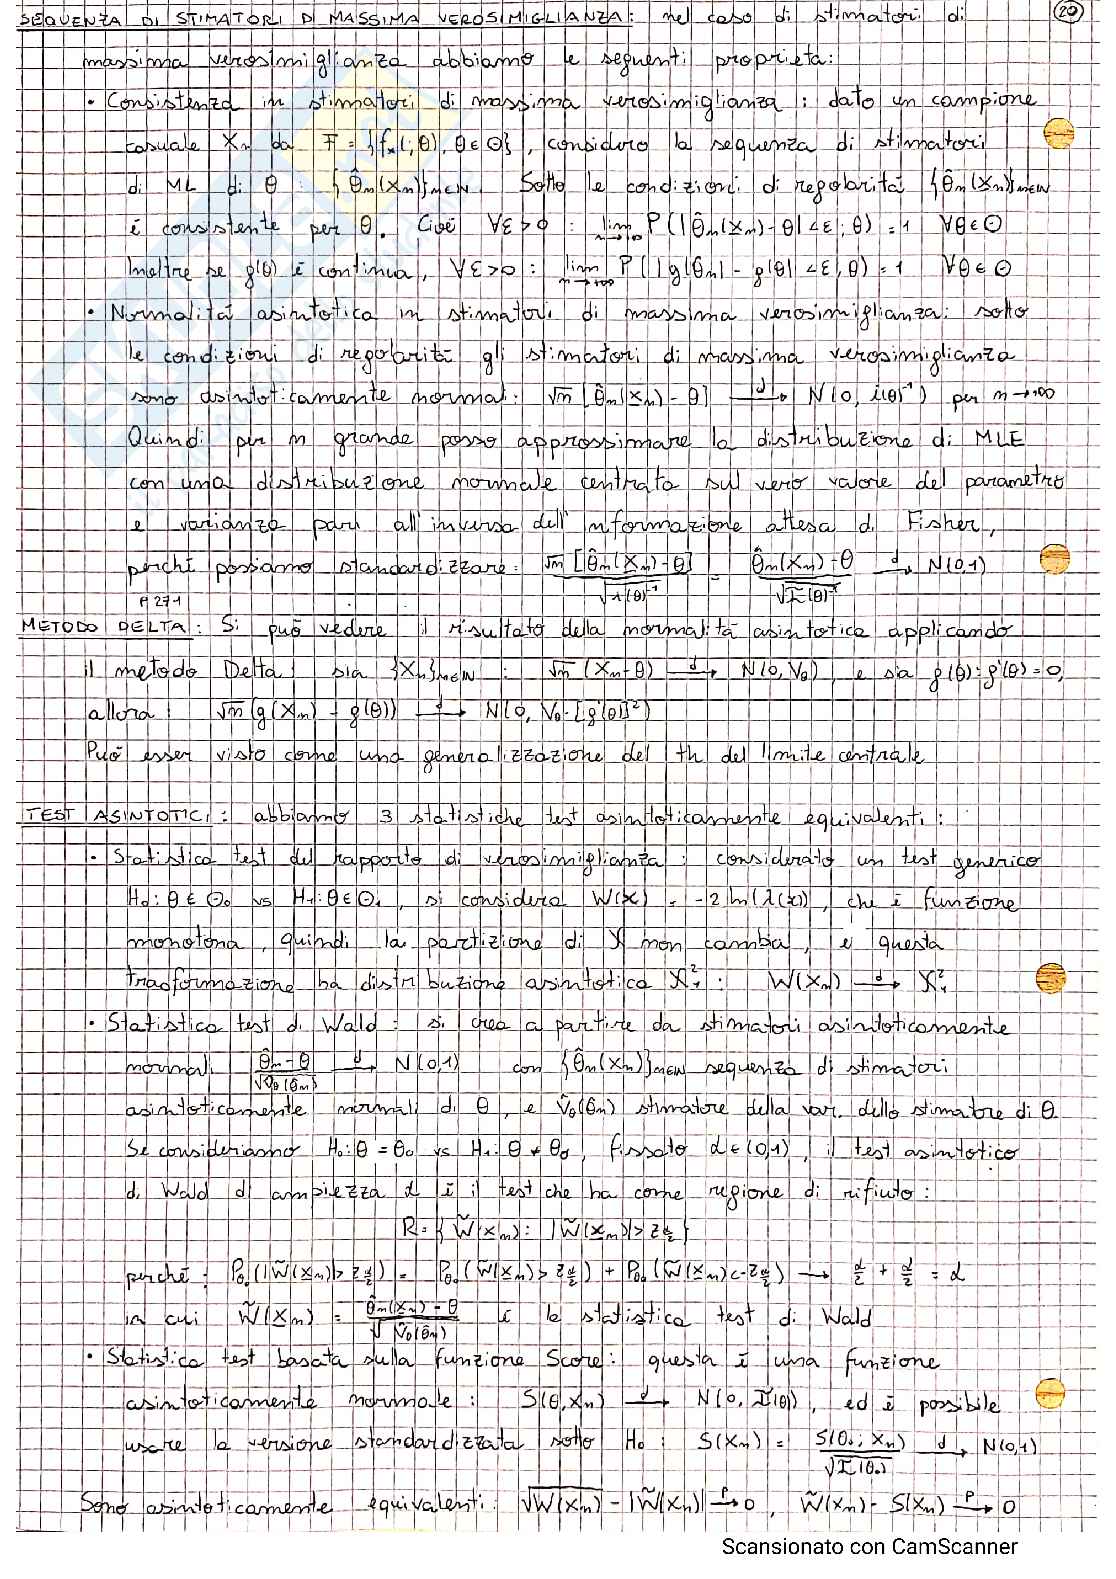 SEQUENZA DI STIMATORI DI MASSIMA VEROSIMIGLIANZA: nel caso di stimatori di 20
massima verosimiglianza abbiamo le seguenti proprietà:
• Consistenza in stimatori di massima verosimiglianza: dato un campione
casuale Xₙ da F = {fₓ(·;θ), θ∈Θ}, considero la sequenza di stimatori
di ML di θ: {θ̂ₙ(Xₙ)}ₙ∈ℕ. Sotto le condizioni di regolarità {θ̂ₙ(Xₙ)}ₙ∈ℕ
è consistente per θ. Cioè ∀ε>0 : lim n→+∞ P(|θ̂ₙ(Xₙ)-θ|<ε; θ) = 1 ∀θ∈Θ
Inoltre se g(θ) è continua, ∀ε>0 : lim n→+∞ P(|g(θ̂ₙ) - g(θ)| <ε; θ) = 1 ∀θ∈Θ
• Normalità asintotica in stimatori di massima verosimiglianza: sotto
le condizioni di regolarità gli stimatori di massima verosimiglianza
sono asintoticamente normali: √n [θ̂ₙ(Xₙ) - θ] →ᵈ N(0, i(θ)⁻¹) per n→+∞
Quindi per n grande posso approssimare la distribuzione di MLE
con una distribuzione normale centrata sul vero valore del parametro
e varianza pari all'inversa dell'informazione attesa di Fisher,
perché possiamo standardizzare: √n [θ̂ₙ(Xₙ)-θ] / √i(θ)⁻¹ = θ̂ₙ(Xₙ)-θ / √I(θ)⁻¹ →ᵈ N(0,1)
P 271
METODO DELTA: Si può vedere il risultato della normalità asintotica applicando
il metodo Delta; sia {Xₙ}ₙ∈ℕ : √n (Xₙ-θ) →ᵈ N(0, Vθ), e sia g(θ): g'(θ) = 0,
allora √n (g(Xₙ) - g(θ)) →ᵈ N(0, Vθ·[g'(θ)]²)
Può esser visto come una generalizzazione del th del limite centrale
TEST ASINTOTICI: abbiamo 3 statistiche test asintoticamente equivalenti:
• Statistica test del rapporto di verosimiglianza: considerato un test generico
H₀: θ∈Θ₀ vs H₁: θ∈Θ₁, si considera W(x) = -2 ln(λ(x)), che è funzione
monotona, quindi la partizione di X non cambia, e questa
trasformazione ha distribuzione asintotica X²₁: W(Xₙ) →ᵈ X²₁
• Statistica test di Wald: si crea a partire da stimatori asintoticamente
normali θ̂ₙ-θ / √V̂θ(θ̂ₙ) →ᵈ N(0,1) con {θ̂ₙ(Xₙ)}ₙ∈ℕ sequenza di stimatori
asintoticamente normali di θ, e V̂θ(θ̂ₙ) stimatore della var. dello stimatore di θ.
Se consideriamo H₀: θ = θ₀ vs H₁: θ ≠ θ₀, fissato α∈(0,1), il test asintotico
di Wald di ampiezza α è il test che ha come regione di rifiuto:
R = { W̃(xₙ) : |W̃(xₙ)| > z α/2 }
perché: Pθ₀(|W̃(xₙ)| > z α/2) = Pθ₀(W̃(xₙ) > z α/2) + Pθ₀(W̃(xₙ) < -z α/2) → α/2 + α/2 = α
in cui W̃(Xₙ) = θ̂ₙ(Xₙ) - θ / √V̂θ(θ̂ₙ) è la statistica test di Wald
• Statistica test basata sulla funzione Score: questa è una funzione
asintoticamente normale: S(θ, Xₙ) →ᵈ N(0, I(θ)), ed è possibile
usare la versione standardizzata sotto H₀: S(Xₙ) = S(θ₀; Xₙ) / √I(θ₀) →ᵈ N(0,1)
Sono asintoticamente equivalenti: √W(Xₙ) - |W̃(Xₙ)| →ᵖ 0, W̃(Xₙ) - S(Xₙ) →ᵖ 0
Scansionato con CamScanner